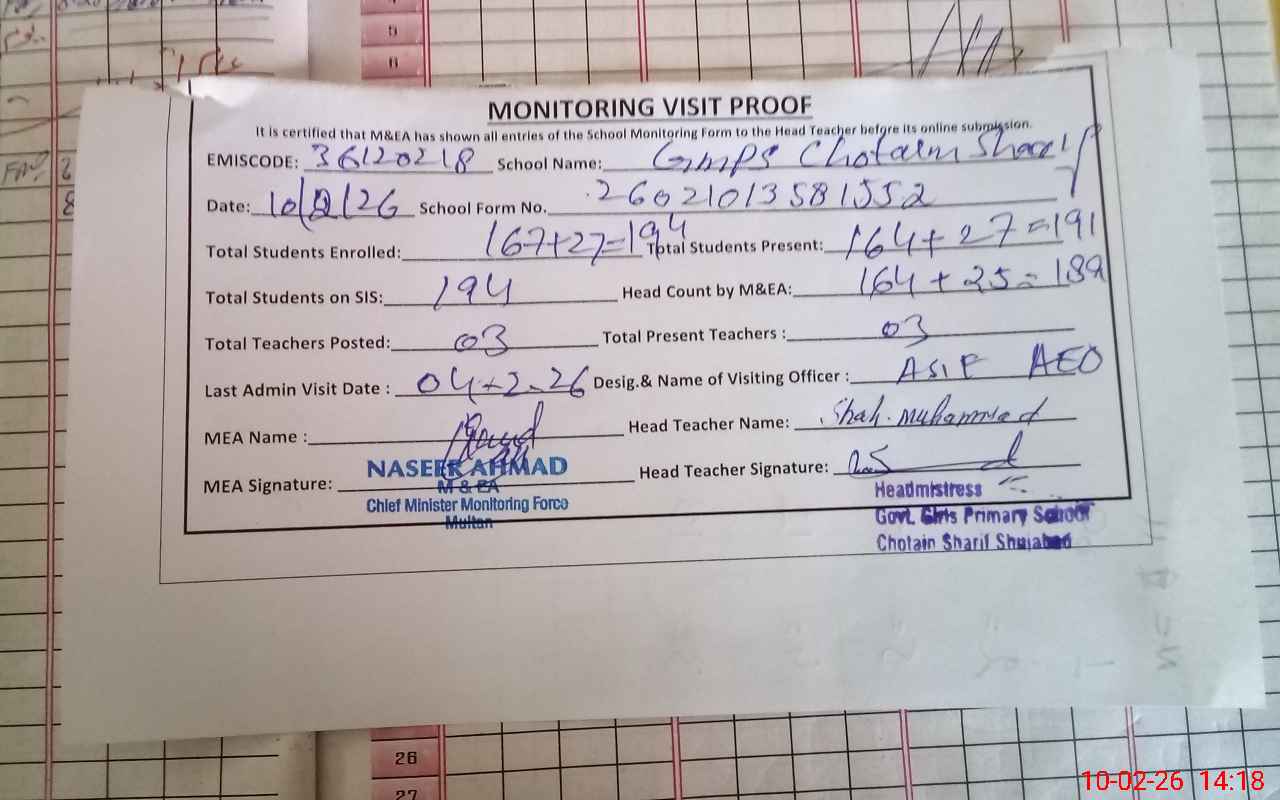 5
6
MONITORING VISIT PROOF
It is certified that M&EA has shown all entries of the School Monitoring Form to the Head Teacher before its online submission.
EMISCODE: 36120218 School Name: GMPS Chotain Sharif
Date: 10/2/26 School Form No. 26021013581552
Total Students Enrolled: 167+27=194 Total Students Present: 164+27=191
Total Students on SIS: 194 Head Count by M&EA: 164+25=189
Total Teachers Posted: 03 Total Present Teachers : 03
Last Admin Visit Date : 04-2-26 Desig.& Name of Visiting Officer : ASIF AEO
MEA Name : Head Teacher Name: Shah. Muhammad
MEA Signature: Head Teacher Signature:
NASEER AHMAD
M & EA
Chief Minister Monitoring Force
Multan
Headmistress
Govt. Girls Primary School
Chotain Sharif Shujabad
26
27
10-02-26 14:18